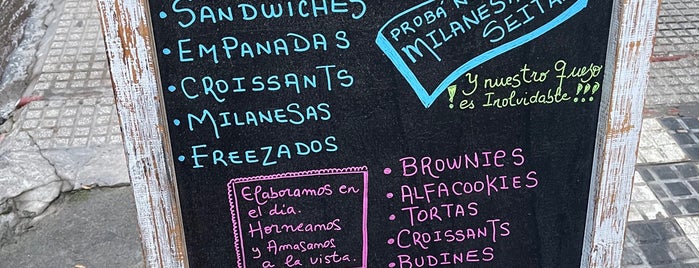 • SANDWICHES
• EMPANADAS
• CROISSANTS
• MILANESAS
• FREEZADOS
PROBÁ
MILANESA
SEITA
¡Y nuestro Queso
es Inolvidable!!!
Elaboramos en
el dia.
Horneamos
y Amasamos
a la vista.
• BROWNIES
• ALFACOOKIES
• TORTAS
• CROISSANTS
• BUDINES